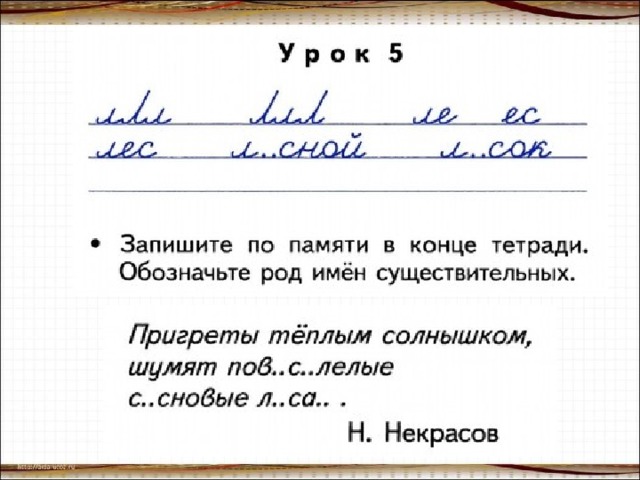 Урок 5
ллл ллл ле ес
лес л..сной л..сок
• Запишите по памяти в конце тетради.
Обозначьте род имён существительных.
Пригреты тёплым солнышком,
шумят пов..с..лелые
с..сновые л..са.. .
Н. Некрасов